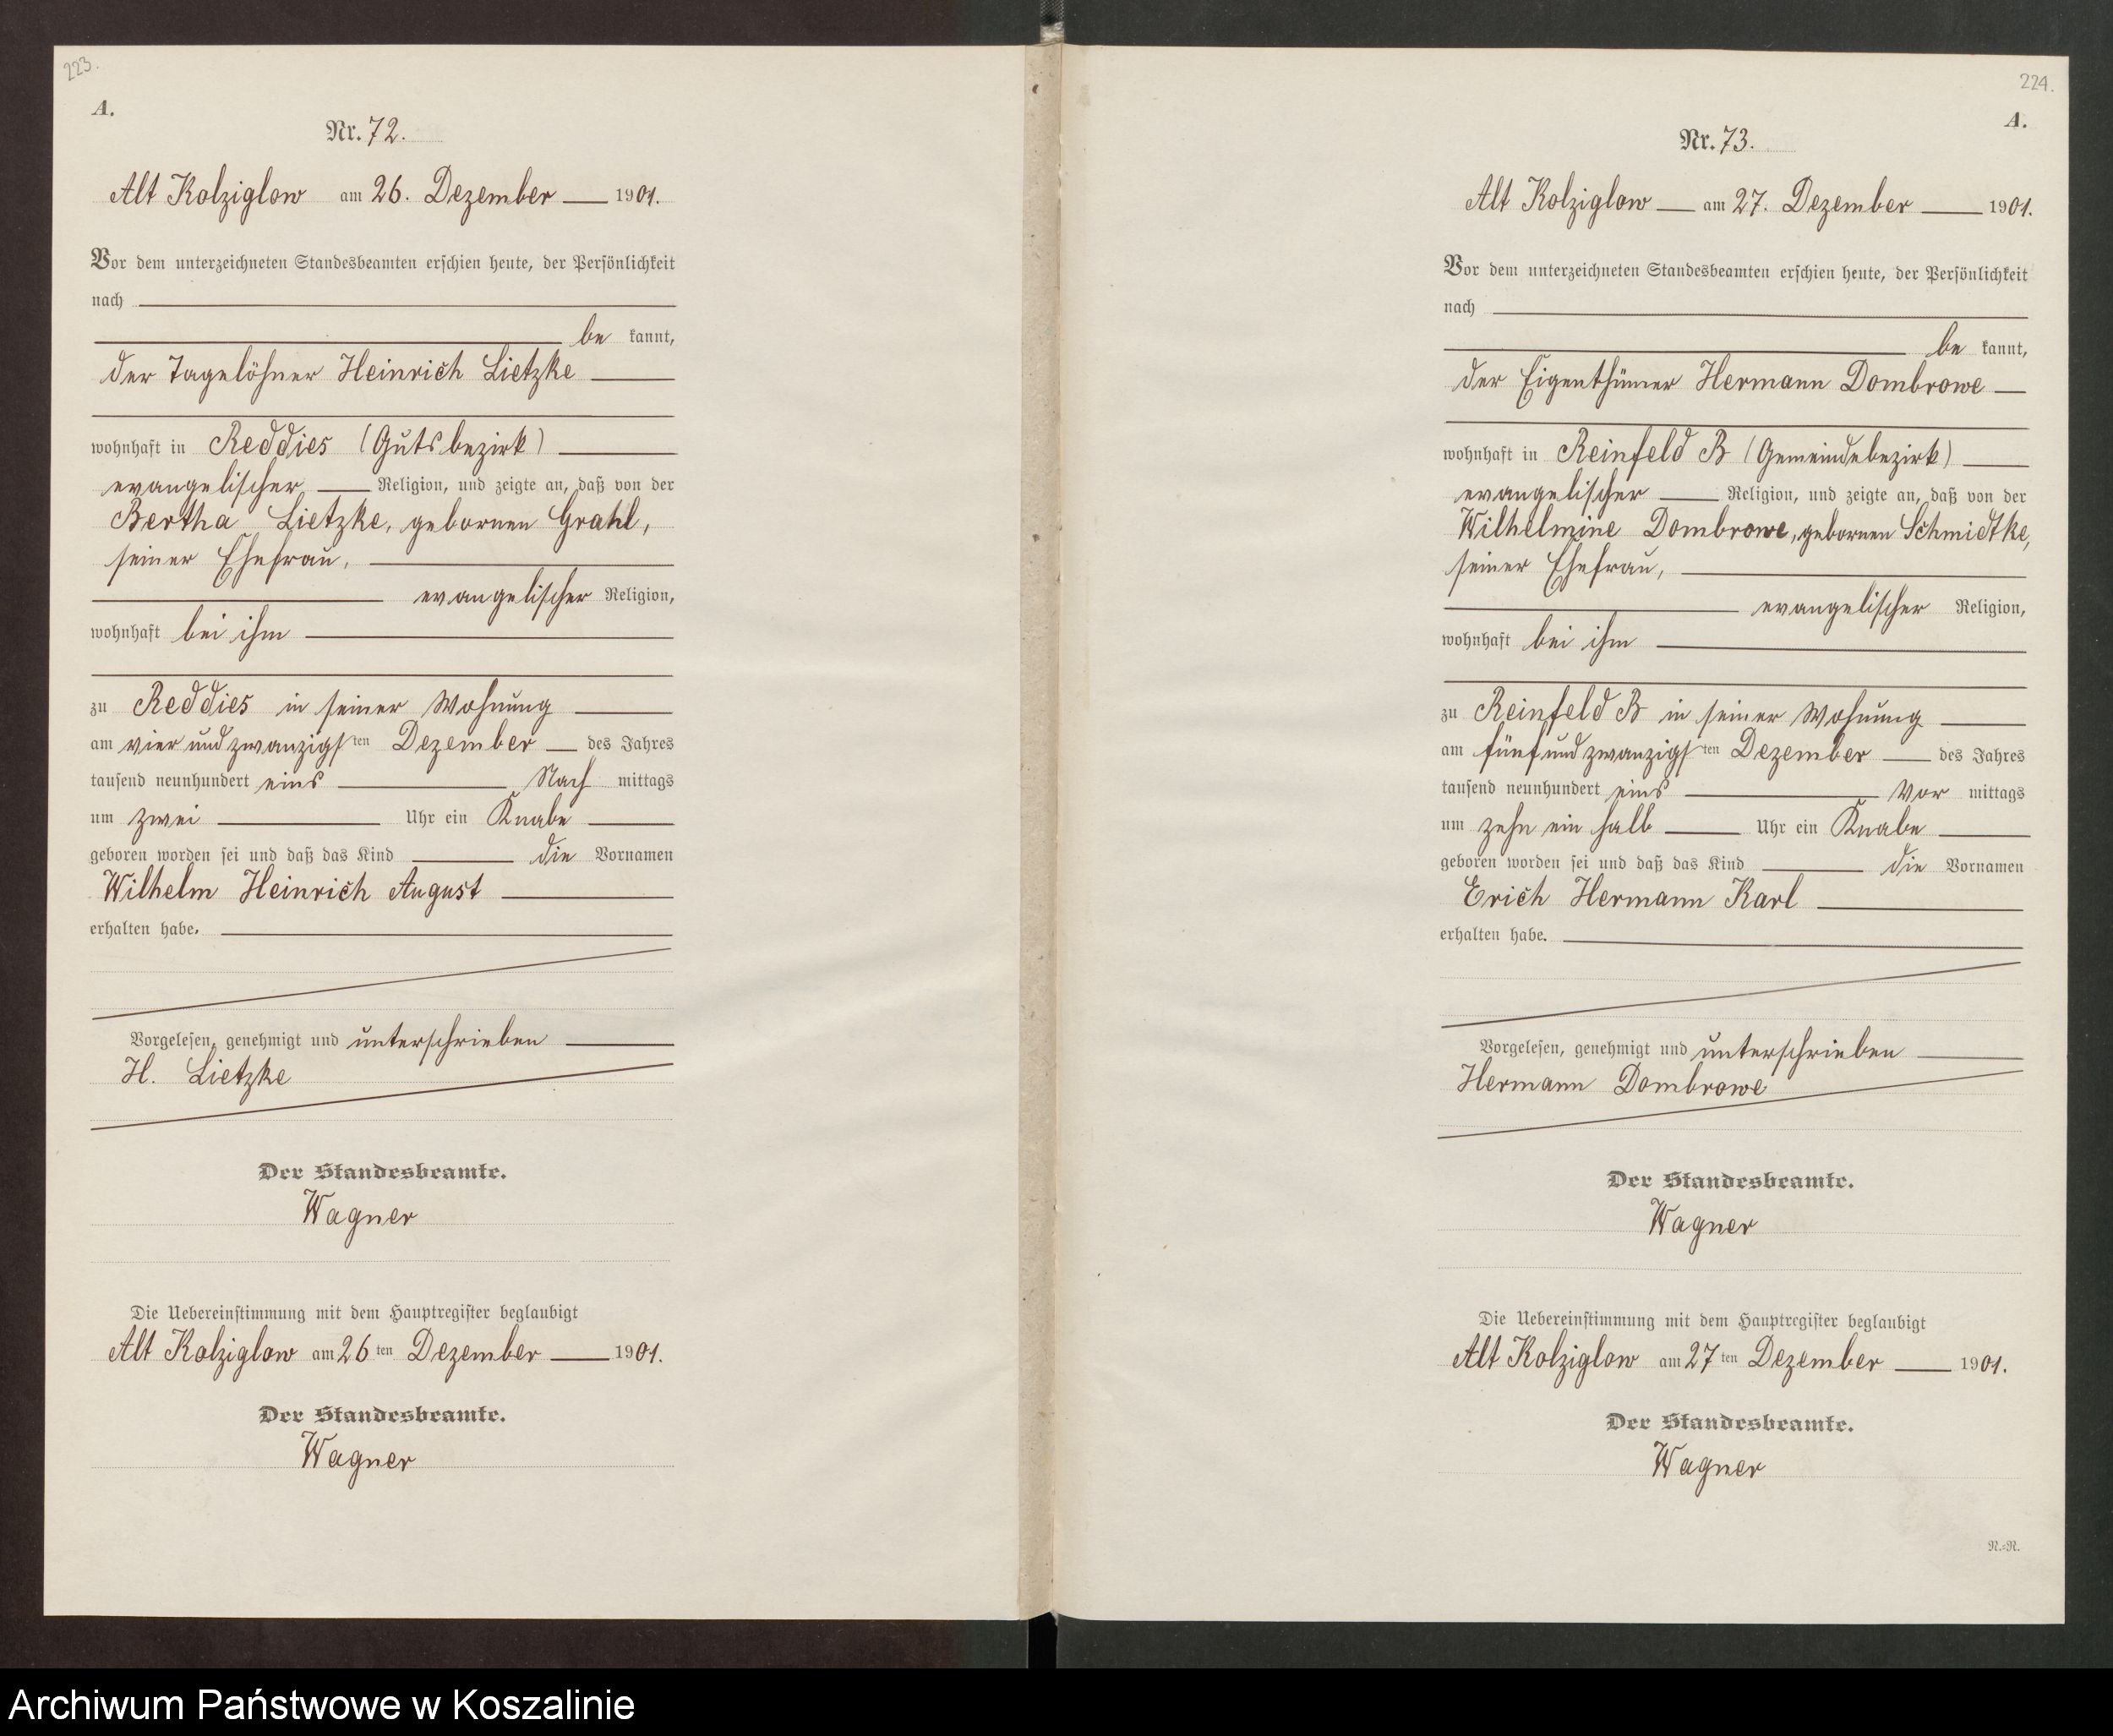 223.
A.
Nr. 72.
Alt Kolziglow am 26. Dezember 1901.
Vor dem unterzeichneten Standesbeamten erschien heute, der Persönlichkeit
nach
be kannt,
der Tagelöhner Heinrich Lietzke
wohnhaft in Reddies (Gutsbezirk)
evangelischer Religion, und zeigte an, daß von der
Bertha Lietzke, gebornen Grahl,
seiner Ehefrau,
evangelischer Religion,
wohnhaft bei ihm
zu Reddies in seiner Wohnung
am vier und zwanzigsten Dezember des Jahres
tausend neunhundert eins Nach mittags
um zwei Uhr ein Knabe
geboren worden sei und daß das Kind die Vornamen
Wilhelm Heinrich August
erhalten habe.
Vorgelesen, genehmigt und unterschrieben
H. Lietzke
Der Standesbeamte.
Wagner
Die Uebereinstimmung mit dem Hauptregister beglaubigt
Alt Kolziglow am 26ten Dezember 1901.
Der Standesbeamte.
Wagner
224.
A.
Nr. 73.
Alt Kolziglow am 27. Dezember 1901.
Vor dem unterzeichneten Standesbeamten erschien heute, der Persönlichkeit
nach
be kannt,
der Eigenthümer Hermann Dombrowe
wohnhaft in Reinfeld B (Gemeindebezirk)
evangelischer Religion, und zeigte an, daß von der
Wilhelmine Dombrowe, gebornen Schmidtke,
seiner Ehefrau,
evangelischer Religion,
wohnhaft bei ihm
zu Reinfeld B in seiner Wohnung
am fünf und zwanzigsten Dezember des Jahres
tausend neunhundert eins Vor mittags
um zehn ein halb Uhr ein Knabe
geboren worden sei und daß das Kind die Vornamen
Erich Hermann Karl
erhalten habe.
Vorgelesen, genehmigt und unterschrieben
Hermann Dombrowe
Der Standesbeamte.
Wagner
Die Uebereinstimmung mit dem Hauptregister beglaubigt
Alt Kolziglow am 27ten Dezember 1901.
Der Standesbeamte.
Wagner
N.=N.
Archiwum Państwowe w Koszalinie